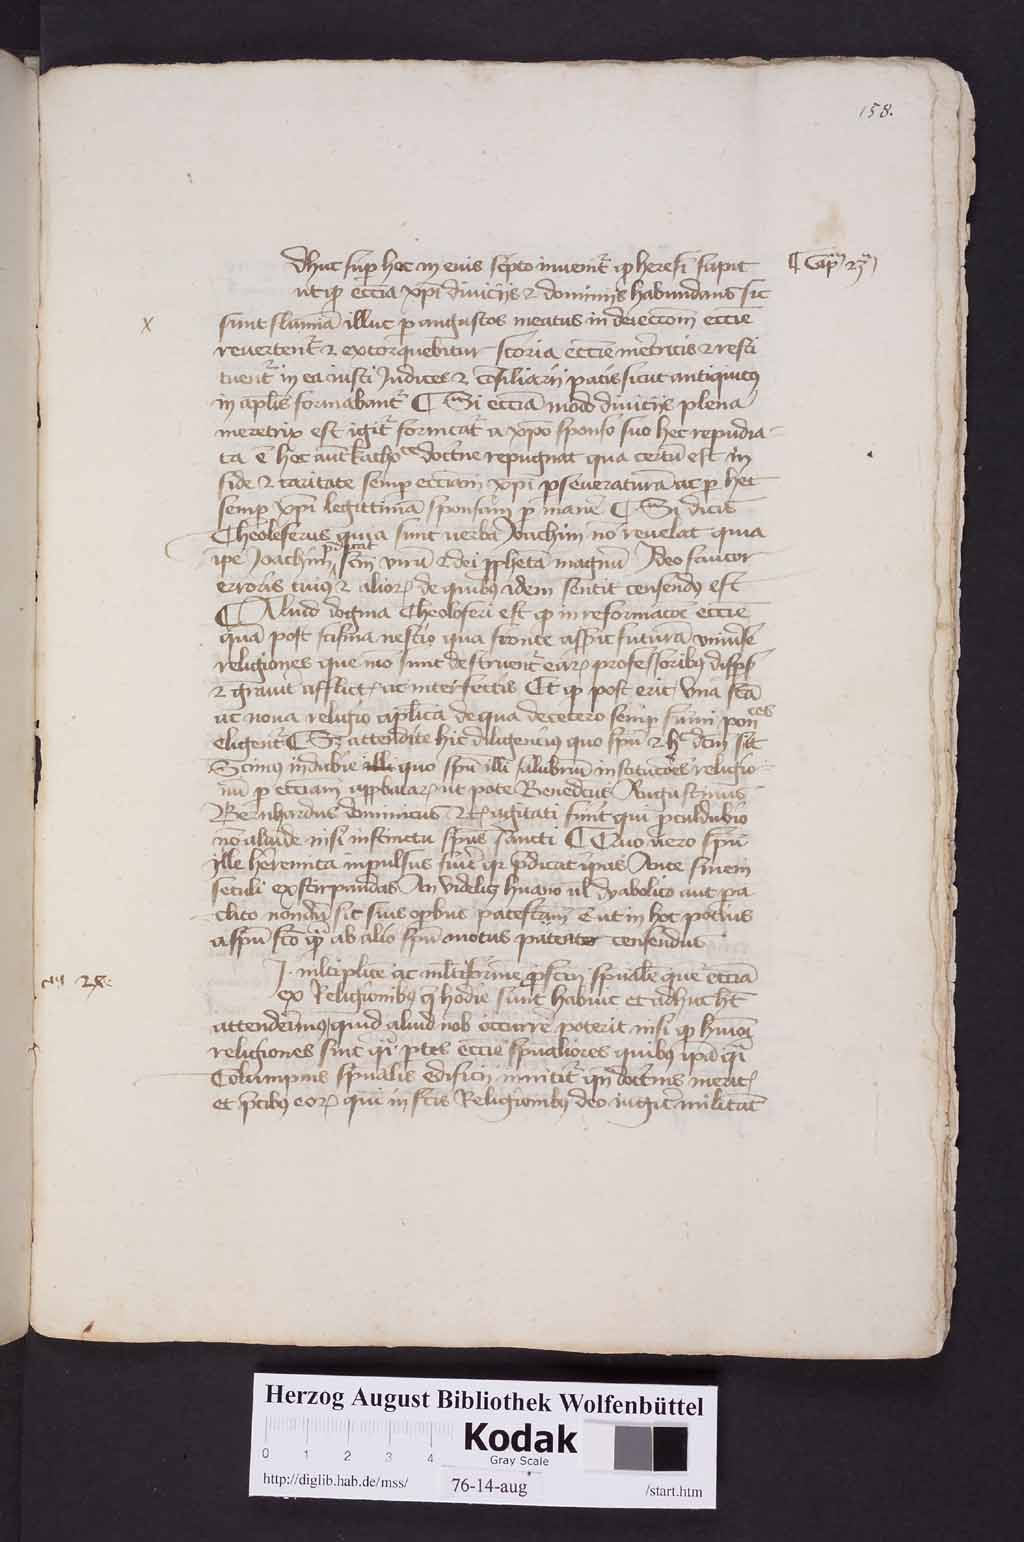 158.
dhuc sup hoc in eius scpto inuenit' q heresi sapit
¶ Cap 23
ut q eccia xpi diuicijs & dominijs habundans sic
x
sunt flumina illuc p angustos meatus in deieccom eccie
reuertent' & extorquebitur scoria eccie meretricis & resti
tuent' in ea iusti Iudices & csiliarij pacis sicut antiquit9
in aplis formabant' ¶ Si eccia modo diuicijs plena
meretrix est igit' fornicat' a xpo sponso suo hec repudia
ta e hoc aut katho ce doctne repugnat qua certu est in
fide & caritate semp ecciam xpi pseueratura ac p hec
semp xpi legittima sponsam p mane ¶ Si dicis
Theoloferus quia sunt uerba Joachim no releuat quia
ipe Joachim pdicat scm viru & dei ppheta magnu Ideo fautor
erroris tuius & alior de quib9 idem sentit censend9 est
¶ Aliud dogma Theoloferi est q in reformacoe eccie
qua post scisma nescio qua fronte asserit futura uniuse
religiones que mo sunt destruent' ear professorib9 disps
& grauit afflict ac interfectis Et q post erit vna sca
ac noua religio aplica de qua decetero semp sumi pon ces
eligent' ¶ Sz attendite hic diligencius quo spu & h dcm sit
Scimus indubie quo spu illi salubrium institucoes religio
nu p ecciam appbatar ut pote Benedcus Augustinus
Bernhardus dominicus & agitati sunt qui pculdubio
no aliude nisi instinctu spus sancti ¶ Quo uero spu
ille heremita inpulsus fuit q pdicat ipas Ante finem
seculi exstirpandas An videlz huano ul dyabolico aut pa
clito nondu sit suis opbus patefactum Eut in hoc pocius
a spu sco q ab alio spu motus censendus
28
I multiplice ac multiforme pfectu spuale que eccia
ex Religionibus q hodie sunt habuit et adhuc ht
attenderim9 quid aliud nob occurre poterit nisi q hmoi
religiones sint q ptes eccie spualiores quib9 ipa q
Columpnis spualis edificij innitit' qn doctnis merit
et pcib9 eor qui in scis Religionib9 deo iugit militat
Herzog August Bibliothek Wolfenbüttel
0 1 2 3 4
Kodak
Gray Scale
http://diglib.hab.de/mss/
76-14-aug
/start.htm